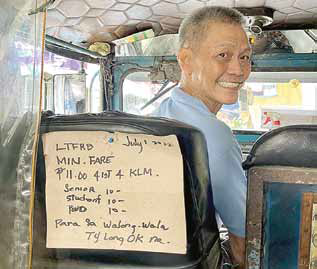 LTFRB July 1 2022
MIN. FARE
₱11.00 41ST 4 KLM.
Senior 10-
Student 10-
PWD 10-
Para Sa Walong-Wala
TY Long OK na.